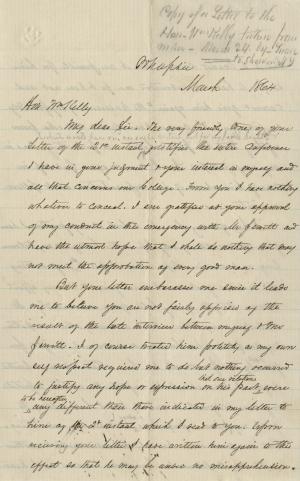 Copy of a Letter to the
Hon. Wm Kelly
March 24
Po'keepsie
March 1864
Hon Wm Kelly
My dear Sir. The very friendly tone of your
letter of the 21st instant justifies the entire confidence
I have in your judgment & your interest in myself and
all that concerns our College. From you I have nothing
whatever to conceal. I am gratified at your approval
of my conduct in the emergency with Mr
have the utmost hope that I shall do nothing that may
not meet the approbation of every good man.
But your letter embarrasses me since it leads
me to believe you are not fairly apprised of the
result of the late interview between myself & Mr
I of course treated him politely as my own
self respect required me to do but nothing occurred
that our relations
to justify any hope or expression on his part were
to be hereafter
any different than those indicated in my letter to
him of the 2d instant which I send to you. Upon
receiving your letter I have written him again to this
effect so that he may be under no misapprehension.